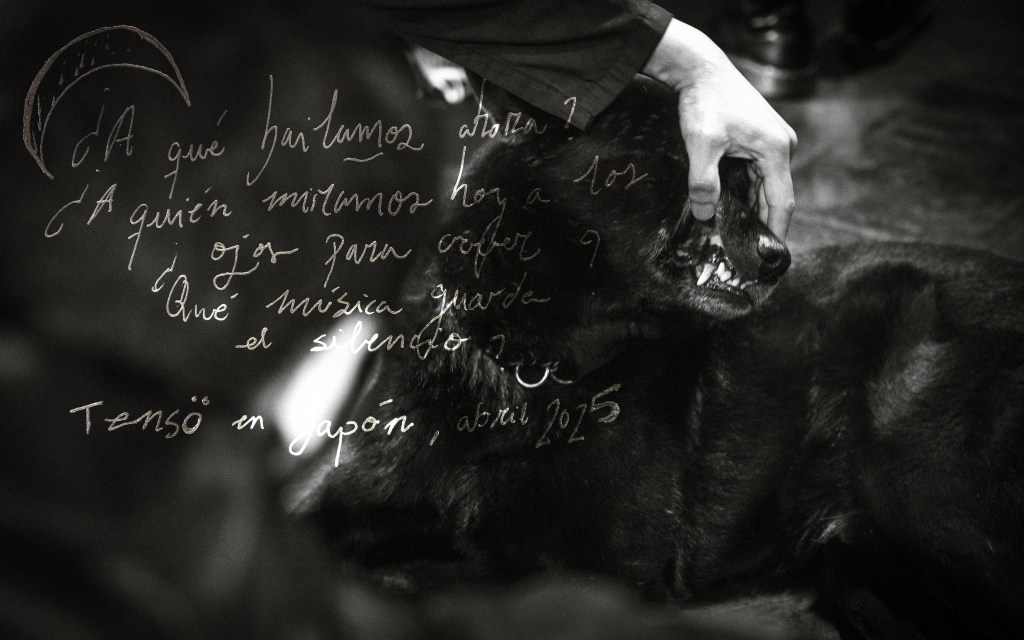 ¿A qué bailamos ahora?
¿A quién miramos hoy a los
ojos para ?
¿Qué música guarda
el silencio?
Tensö en Japón, abril 2025